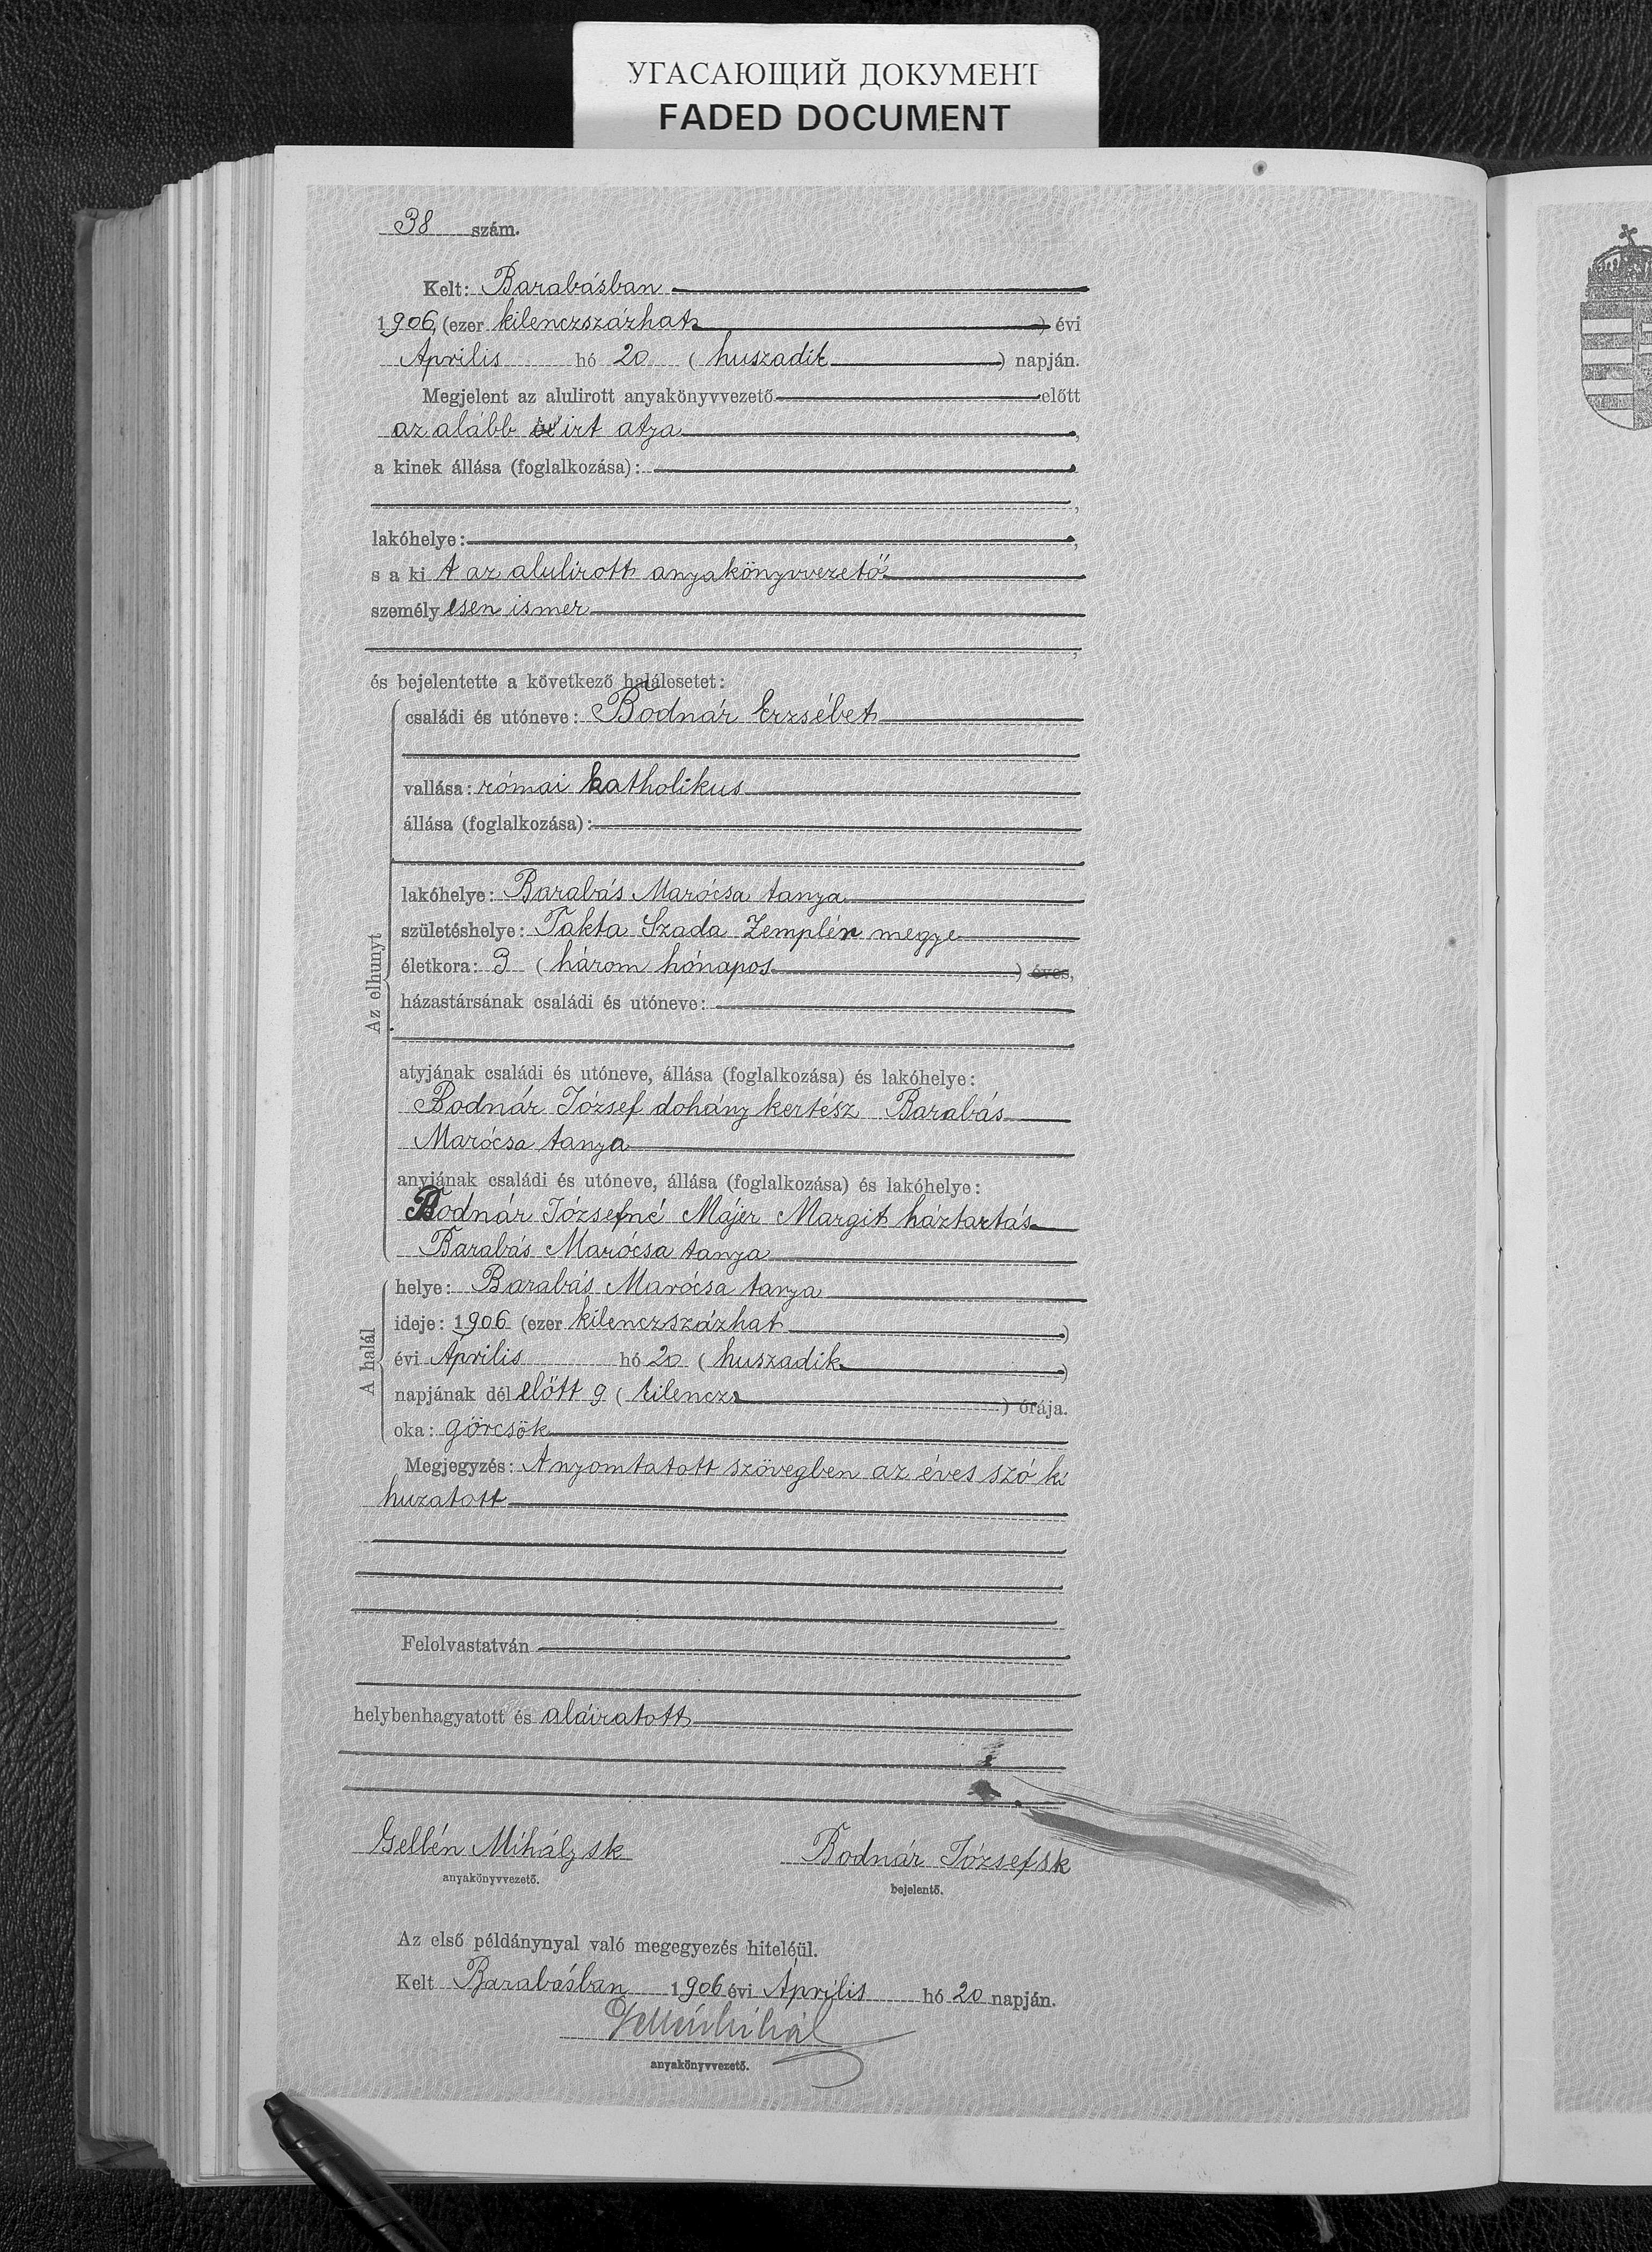 УГАСАЮЩИЙ ДОКУМЕНТ
FADED DOCUMENT
38 szám.
Kelt: Barabásban
1906, (ezer kilenczszázhat) évi
Április hó 20 (huszadik) napján.
Megjelent az alulirott anyakönyvvezető előtt
az alább irt atya,
a kinek állása (foglalkozása):
lakóhelye:
s a ki t az alulirott anyakönyvvezető
személy esen ismer
és bejelentette a következő halálesetet:
Az elhunyt
családi és utóneve: Bodnár Erzsébet
vallása: római katholikus
állása (foglalkozása):
lakóhelye: Barabás Marócsa tanya
születéshelye: Takta Szada Zemplén megye
életkora: 3 (három hónapos) éves,
házastársának családi és utóneve:
atyjának családi és utóneve, állása (foglalkozása) és lakóhelye:
Bodnár József dohány kertész Barabás
Marócsa tanya
anyjának családi és utóneve, állása (foglalkozása) és lakóhelye:
Bodnár Józsefné Májer Margit háztartás
Barabás Marócsa tanya
A halál
helye: Barabás Marócsa tanya
ideje: 1906 (ezer kilenczszázhat)
évi Április hó 20 (huszadik)
napjának dél előtt 9 (kilencz) órája.
oka: görcsök
Megjegyzés: A nyomtatott szövegben az éves szó ki
huzatott
Felolvastatván
helybenhagyatott és aláiratott
Gellén Mihály sk
anyakönyvvezető.
Bodnár József sk
bejelentő.
Az első példánynyal való megegyezés hiteléül.
Kelt Barabásban 1906 évi Április hó 20 napján.
Gellén Mihály
anyakönyvvezető.